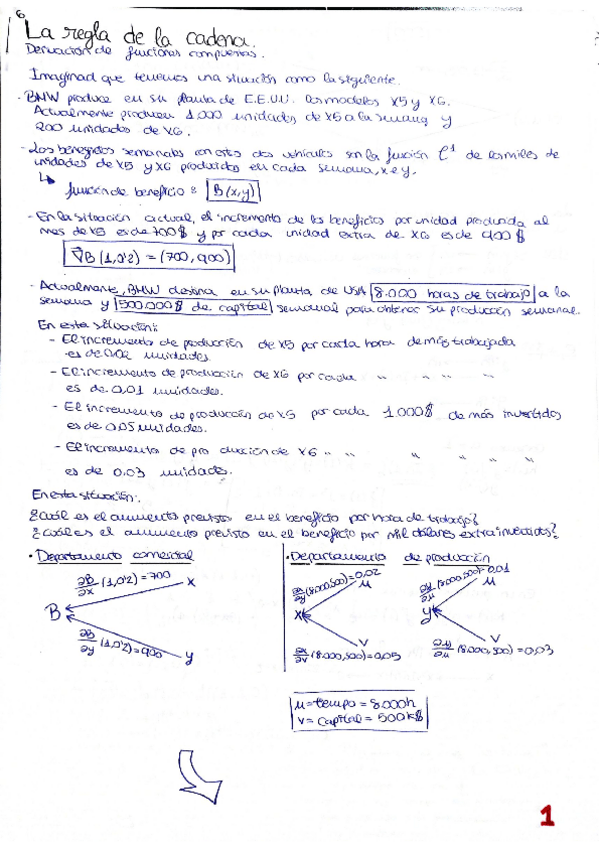 6
La regla de la cadena.
Derivación de funciones compuestas.
Imaginad que tenemos una situación como la siguiente.
- BMW produce en su planta de E.E.U.U. los modelos X5 y X6.
Actualmente producen 1.000 unidades de X5 a la semana y
200 unidades de X6.
- Los beneficios semanales con estos dos vehículos son la función C¹ de los miles de
unidades de X5 y X6 producidos en cada semana, x e y.
↳ función de beneficio = B(x,y)
- En la situación actual, el incremento de los beneficios por unidad producida al
mes de X5 es de 700$ y por cada unidad extra de X6 es de 900$
∇B (1,0'2) = (700, 900)
- Actualmente, BMW destina en su planta de USA 8.000 horas de trabajo a la
semana y 500.000$ de capital semanal para obtener su producción semanal.
En esta situación:
- El incremento de producción de X5 por cada hora de más trabajada
es de 0.02 unidades.
- El incremento de producción de X6 por cada " " " "
es de 0,01 unidades.
- El incremento de producción de X5 por cada 1.000$ de más invertidos
es de 0,05 unidades.
- El incremento de producción de X6 " " " " " "
es de 0.03 unidades.
En esta situación:
¿Cuál es el aumento previsto en el beneficio por hora de trabajo?
¿Cuál es el aumento previsto en el beneficio por mil dólares extra invertidos?
• Departamento comercial
• Departamento de producción
∂B/∂x (1,0'2) = 700
x
B
∂B/∂y (1,0'2) = 900
y
(8.000,500) = 0,02
μ
x
v
∂x/∂v (8.000,500) = 0,05
∂y/∂μ (8.000,500) = 0,01
μ
y
v
∂y/∂μ (8.000,500) = 0,03
μ = tiempo = 8.000h
v = capital = 500k$
1